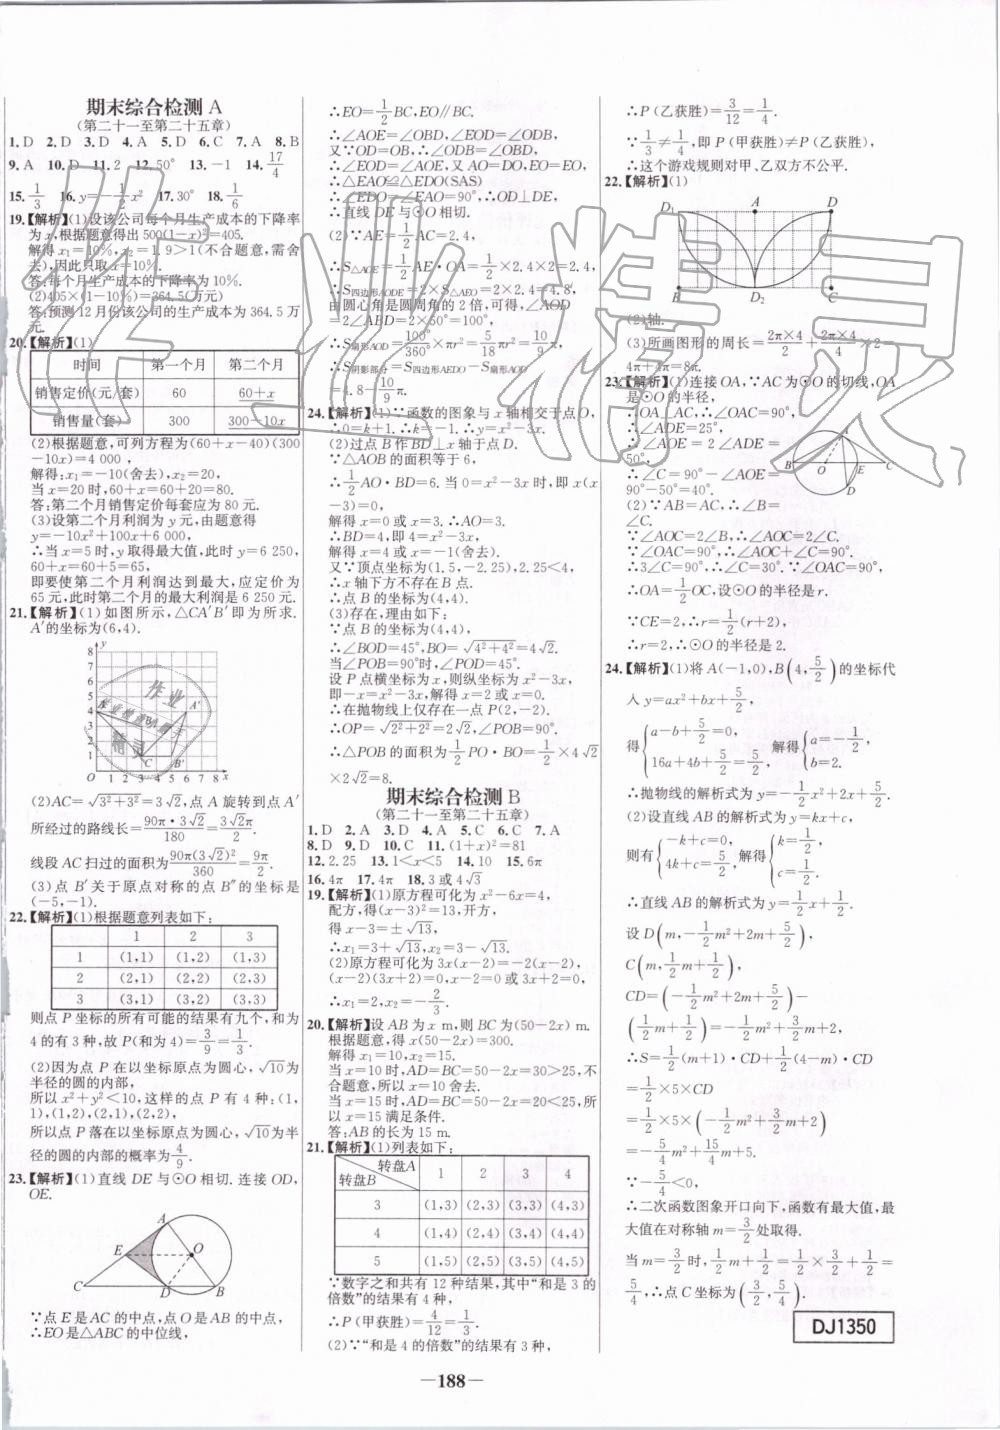 期末综合检测 A
(第二十一至第二十五章)
1. D 2. D 3. D 4. A 5. D 6. C 7. A 8. B
9. A 10. D 11. 2 12. 50° 13. -1 14. 17/4
15. 1/3 16. y=1/2x² 17. 30° 18. 1/6
19.【解析】(1)设该公司每个月生产成本的下降率
为x,根据题意得出500(1-x)²=405.
解得x₁=10%,x₂=1.9>1(不合题意,需舍
去),因此只取x=10%.
答:每个月生产成本的下降率为10%.
(2)405×(1-10%)=364.5(万元)
答:预测12月份该公司的生产成本为364.5万
元.
20.【解析】(1)
时间 第一个月 第二个月
销售定价(元/套) 60 60+x
销售量(套) 300 300-10x
(2)根据题意,可列方程为(60+x-40)(300
-10x)=4 000,
解得:x₁=-10(舍去),x₂=20,
当x=20时,60+x=60+20=80.
答:第二个月销售定价每套应为80元.
(3)设第二个月利润为y元,由题意得
y=-10x²+100x+6 000,
∴当x=5时,y取得最大值,此时y=6 250,
60+x=60+5=65,
即要使第二个月利润达到最大,应定价为
65元,此时第二个月的最大利润是6 250元.
21.【解析】(1)如图所示,△CA′B′即为所求.
A′的坐标为(6,4).
(2)AC=√(3²+3²)=3√2,点A旋转到点A′
所经过的路线长=90π·3√2/180=3√2π/2.
线段AC扫过的面积为90π(3√2)²/360=9π/2.
(3)点B′关于原点对称的点B″的坐标是
(-5,-1).
22.【解析】(1)根据题意列表如下:
1 2 3
1 (1,1) (1,2) (1,3)
2 (2,1) (2,2) (2,3)
3 (3,1) (3,2) (3,3)
则点P坐标的所有可能的结果有九个,和为
4的有3种,故P(和为4)=3/9=1/3.
(2)因为点P在以坐标原点为圆心,√10为
半径的圆的内部,
所以x²+y²<10,这样的点P有4种:(1,
1),(1,2),(2,1),(2,2),
所以点P落在以坐标原点为圆心,√10为半
径的圆的内部的概率为4/9.
23.【解析】(1)直线DE与⊙O相切.连接OD,
OE.
A
E O
C D B
∵点E是AC的中点,点O是AB的中点,
∴EO是△ABC的中位线,
∴EO=1/2BC,EO∥BC.
∴∠AOE=∠OBD,∠EOD=∠ODB,
又∵OD=OB,∴∠OBD=∠ODB,
∴∠EOD=∠AOE,又AO=DO,EO=EO,
∴△EAO≌△EDO(SAS)
∴∠EDO=∠EAO=90°,∴OD⊥DE,
∴直线DE与⊙O相切.
(2)∵AE=1/2AC=2.4,
∴S△AOE=1/2AE·OA=1/2×2.4×2=2.4,
∴S四边形AODE=2×S△AEO=2×2.4=4.8,
由圆心角是圆周角的2倍,可得,∠AOD
=2∠ABD=2×50°=100°,
∴S扇形AOD=100°/360°×πr²=5/18πr²=10/9π.
∴S阴影部分=S四边形AEDO-S扇形AOD
=4.8-10/9π.
24.【解析】(1)∵函数的图象与x轴相交于点O,
∴0=k+1.∴k=-1.∴y=x²-3x.
(2)过点B作BD⊥x轴于点D.
∵△AOB的面积等于6,
∴1/2AO·BD=6.当0=x²-3x时,即x(x
-3)=0,
解得x=0或x=3.∴AO=3.
∴BD=4,即4=x²-3x,
解得x=4或x=-1(舍去).
又∵顶点坐标为(1.5,-2.25),2.25<4,
∴x轴下方不存在B点.
∴点B的坐标为(4,4).
(3)存在,理由如下:
∵点B的坐标为(4,4),
∴∠BOD=45°,BO=√(4²+4²)=4√2.
当∠POB=90°时,∠POD=45°.
设P点横坐标为x,则纵坐标为x²-3x,
即-x=x²-3x,解得x=2或x=0.
∴在抛物线上仅存在一点P(2,-2).
∴OP=√(2²+2²)=2√2,∠POB=90°.
∴△POB的面积为1/2PO·BO=1/2×4√2
×2√2=8.
期末综合检测 B
(第二十一至第二十五章)
1. D 2. A 3. D 4. A 5. C 6. C 7. A
8. D 9. D 10. C 11. (1+x)²=81
12. 2.25 13. 1<x<5 14. 10 15. 6π
16. 4π 17. 4π 18. 3或4√3
19.【解析】(1)原方程可化为x²-6x=4,
配方,得(x-3)²=13,开方,
得x-3=±√13,
∴x₁=3+√13,x₂=3-√13.
(2)原方程可化为3x(x-2)=-2(x-2),
(x-2)(3x+2)=0,x-2=0或3x+2=0,
∴x₁=2,x₂=-2/3.
20.【解析】设AB为x m,则BC为(50-2x) m.
根据题意,得x(50-2x)=300.
解得x₁=10,x₂=15.
当x=10时,AD=BC=50-2x=30>25,不
合题意,所以x=10舍去.
当x=15时,AD=BC=50-2x=20<25,所
以x=15满足条件.
答:AB的长为15 m.
21.【解析】(1)列表如下:
转盘A 转盘B 1 2 3 4
3 (1,3) (2,3) (3,3) (4,3)
4 (1,4) (2,4) (3,4) (4,4)
5 (1,5) (2,5) (3,5) (4,5)
∵数字之和共有12种结果,其中“和是3的
倍数”的结果有4种,
∴P(甲获胜)=4/12=1/3.
(2)∵“和是4的倍数”的结果有3种,
∴P(乙获胜)=3/12=1/4.
∵1/3≠1/4,即P(甲获胜)≠P(乙获胜).
∴这个游戏规则对甲、乙双方不公平.
22.【解析】(1)
D₁ A D
B D₂ C
(2)轴.
(3)所画图形的周长=2π×4/2+2π×4/4×2=
4π+4π=8π.
23.【解析】(1)连接OA,∵AC为⊙O的切线,OA
是⊙O的半径,
∴OA⊥AC,∴∠OAC=90°,
∵∠ADE=25°,
∴∠AOE=2∠ADE=
50°,
∴∠C=90°-∠AOE=
90°-50°=40°.
(2)∵AB=AC,∴∠B=
∠C.
∵∠AOC=2∠B,∴∠AOC=2∠C.
∵∠OAC=90°,∴∠AOC+∠C=90°.
∴3∠C=90°,∴∠C=30°.∵∠OAC=90°,
∴OA=1/2OC,设⊙O的半径是r.
∵CE=2,∴r=1/2(r+2),
∴r=2,∴⊙O的半径是2.
24.【解析】(1)将A(-1,0),B(4,5/2)的坐标代
入y=ax²+bx+5/2,
得{a-b+5/2=0, 16a+4b+5/2=5/2, 解得{a=-1/2, b=2.
∴抛物线的解析式为y=-1/2x²+2x+5/2.
(2)设直线AB的解析式为y=kx+c,
则有{-k+c=0, 4k+c=5/2, 解得{k=1/2, c=1/2.
∴直线AB的解析式为y=1/2x+1/2.
设D(m,-1/2m²+2m+5/2),
C(m,1/2m+1/2),
CD=(-1/2m²+2m+5/2)-
(1/2m+1/2)=-1/2m²+3/2m+2,
∴S=1/2(m+1)·CD+1/2(4-m)·CD
=1/2×5×CD
=1/2×5×(-1/2m²+3/2m+2)
=-5/4m²+15/4m+5.
∵-5/4<0,
∴二次函数图象开口向下,函数有最大值,最
大值在对称轴m=3/2处取得.
当m=3/2时,1/2m+1/2=1/2×3/2+1/2=
5/4,∴点C坐标为(3/2,5/4).
DJ1350
— 188 —
作业精灵